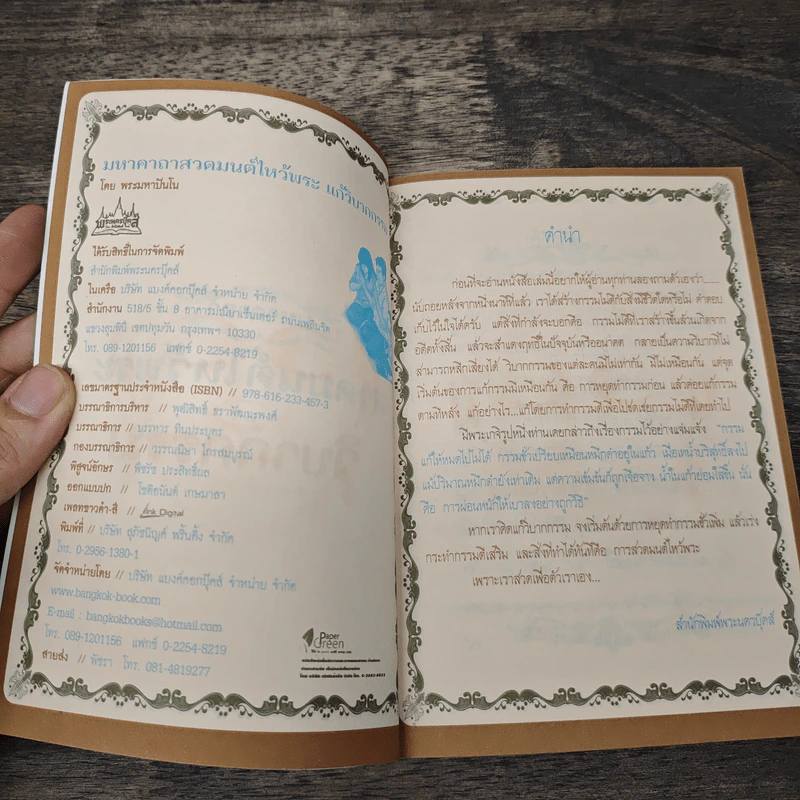 มหาคาถาสวดมนต์ไหว้พระ แก้วิบากกรรม
โดย พระมหาปันโน
พระนครบุ๊คส์
ได้รับสิทธิ์ในการจัดพิมพ์
สำนักพิมพ์พระนครบุ๊คส์
ในเครือ บริษัท แบงค์คอกบุ๊คส์ จำหน่าย จำกัด
สำนักงาน 518/5 ชั้น 8 อาคารมณียาเซ็นเตอร์ ถนนเพลินจิต
แขวงลุมพินี เขตปทุมวัน กรุงเทพฯ 10330
โทร. 089-1201156 แฟกซ์ 0-2254-8219
เลขมาตรฐานประจำหนังสือ (ISBN) // 978-616-233-457-3
บรรณาธิการบริหาร // พุฒิสิทธิ์ ธราพัฒนะพงศ์
บรรณาธิการ // บรรหาร ทินประบูตร
กองบรรณาธิการ // วรรณนิษา ไกรสมบูรณ์
พิสูจน์อักษร // พีรรัช ประสิทธิ์ผล
ออกแบบปก // โชติอนันต์ เกษมาลา
เพลทขาวดำ-สี // Link Digital
พิมพ์ที่ // บริษัท สุภัชนิญค์ พริ้นติ้ง จำกัด
โทร. 0-2956-1380-1
จัดจำหน่ายโดย // บริษัท แบงค์คอกบุ๊คส์ จำหน่าย จำกัด
www.bangkok-book.com
E-mail : bangkokbooks@hotmail.com
โทร. 089-1201156 แฟกซ์ 0-2254-8219
สายส่ง // พัชรา โทร. 081-4819277
Paper
Green
คำนำ
ก่อนที่จะอ่านหนังสือเล่มนี้อยากให้ผู้อ่านทุกท่านลองถามตัวเองว่า......
นับถอยหลังจากหนึ่งนาทีที่แล้ว เราได้สร้างกรรมไม่ดีกับสิ่งมีชีวิตใดหรือไม่ คำตอบ
เก็บไว้ในใจได้ครับ แต่สิ่งที่กำลังจะบอกคือ กรรมไม่ดีที่เราสร้างขึ้นล้วนเกิดจาก
อดีตทั้งสิ้น แล้วจะสำแดงฤทธิ์ในปัจจุบันหรืออนาคต กลายเป็นความวิบากที่ไม่
สามารถหลีกเลี่ยงได้ วิบากกรรมของแต่ละคนมีไม่เท่ากัน มีไม่เหมือนกัน แต่จุด
เริ่มต้นของการแก้กรรมมีเหมือนกัน คือ การหยุดทำกรรมก่อน แล้วค่อยแก้กรรม
ตามทีหลัง แก้อย่างไร...แก้โดยการทำกรรมดีเพื่อไปชดเชยกรรมไม่ดีที่เคยทำไป
มีพระเกจิรูปหนึ่งท่านเคยกล่าวถึงเรื่องกรรมไว้อย่างแจ่มแจ้ง "กรรม
แก้ให้หมดไปไม่ได้ กรรมชั่วเปรียบเหมือนหมึกดำอยู่ในแก้ว เมื่อเทน้ำบริสุทธิ์ลงไป
แม้ปริมาณหมึกดำยังเท่าเดิม แต่ความเข้มข้นก็ถูกเจือจาง น้ำในแก้วย่อมใสขึ้น นั่น
คือ การผ่อนหนักให้เบาลงอย่างถูกวิธี"
หากเราคิดแก้วิบากกรรม จงเริ่มต้นด้วยการหยุดทำกรรมชั่วเพิ่ม แล้วเร่ง
กระทำกรรมดีเสริม และสิ่งที่ทำได้ทันทีคือ การสวดมนต์ไหว้พระ
เพราะเราสวดเพื่อตัวเราเอง...
สำนักพิมพ์พระนครบุ๊คส์